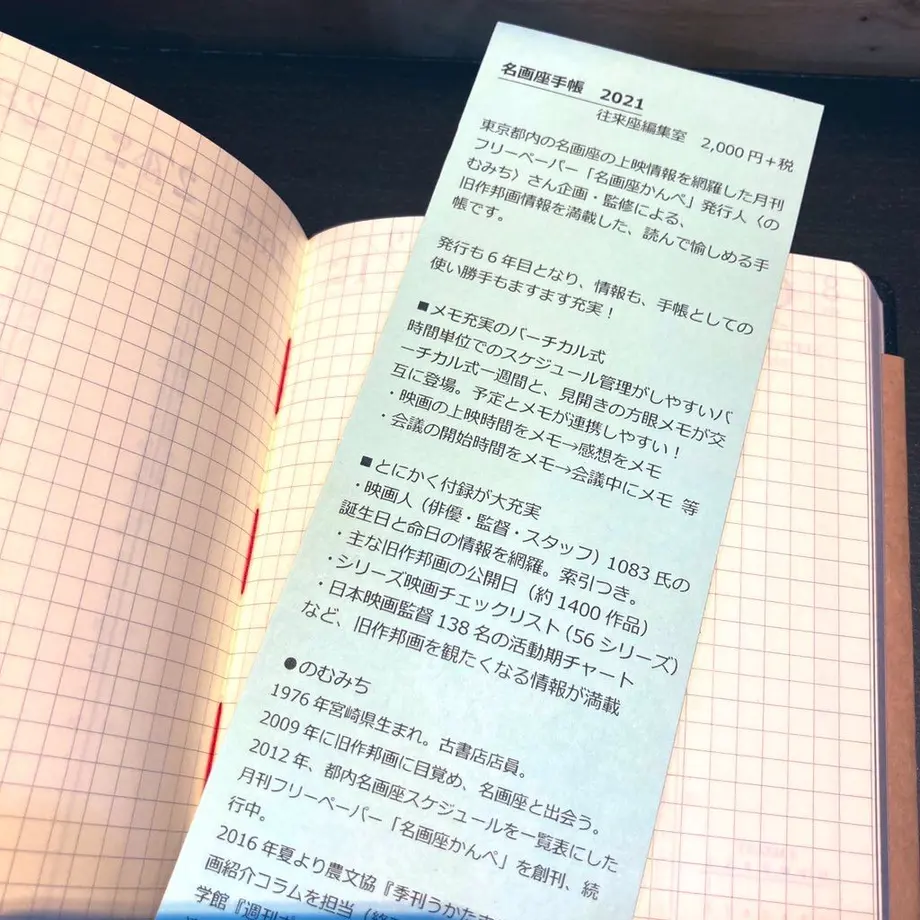 名画座手帳　2021
往来座編集室　2,000円＋税
東京都内の名画座の上映情報を網羅した月刊
フリーペーパー「名画座かんぺ」発行人〈の
むみち〉さん企画・監修による、
旧作邦画情報を満載した、読んで愉しめる手
帳です。
発行も６年目となり、情報も、手帳としての
使い勝手もますます充実！
■メモ充実のバーチカル式
時間単位でのスケジュール管理がしやすいバ
ーチカル式一週間と、見開きの方眼メモが交
互に登場。予定とメモが連携しやすい！
・映画の上映時間をメモ→感想をメモ
・会議の開始時間をメモ→会議中にメモ 等
■とにかく付録が大充実
・映画人（俳優・監督・スタッフ）1083氏の
誕生日と命日の情報を網羅。索引つき。
・主な旧作邦画の公開日（約1400作品）
・シリーズ映画チェックリスト（56シリーズ）
・日本映画監督138名の活動期チャート
など、旧作邦画を観たくなる情報が満載
●のむみち
1976年宮崎県生まれ。古書店店員。
2009年に旧作邦画に目覚め、名画座と出会う。
2012年、都内名画座スケジュールを一覧表にした
月刊フリーペーパー「名画座かんぺ」を創刊、続
行中。
2016年夏より農文協『季刊うかたま
画紹介コラムを担当（終
学館『週刊